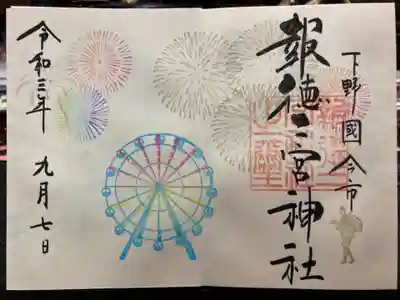 下野國今市
報徳二宮神社
令和三年 九月七日